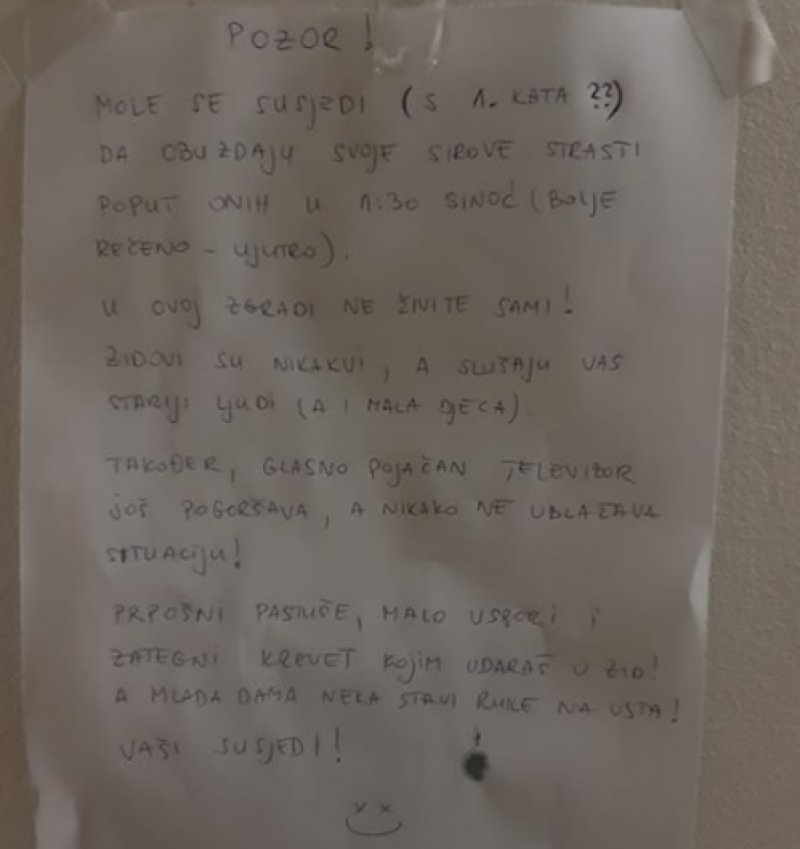 POZOR!
MOLE SE SUSJEDI (S 1. KATA ??)
DA OBUZDAJU SVOJE SIROVE STRASTI
POPUT ONIH U 1:30 SINOĆ (BOLJE
REČENO - UJUTRO).
U OVOJ ZGRADI NE ŽIVITE SAMI!
ZIDOVI SU NIKAKVI, A SLUŠAJU VAS
STARIJI LJUDI (A I MALA DJECA).
TAKOĐER, GLASNO POJAČAN TELEVIZOR
JOŠ POGORŠAVA, A NIKAKO NE UBLAŽAVA
SITUACIJU!
PRPOŠNI PASTUŠE, MALO USPORI I
ZATEGNI KREVET KOJIM UDARAŠ U ZID!
A MLADA DAMA NEKA STAVI RUKE NA USTA!
VAŠI SUSJEDI!